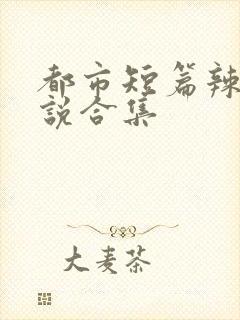 都市短篇辣
说合集
大麦茶